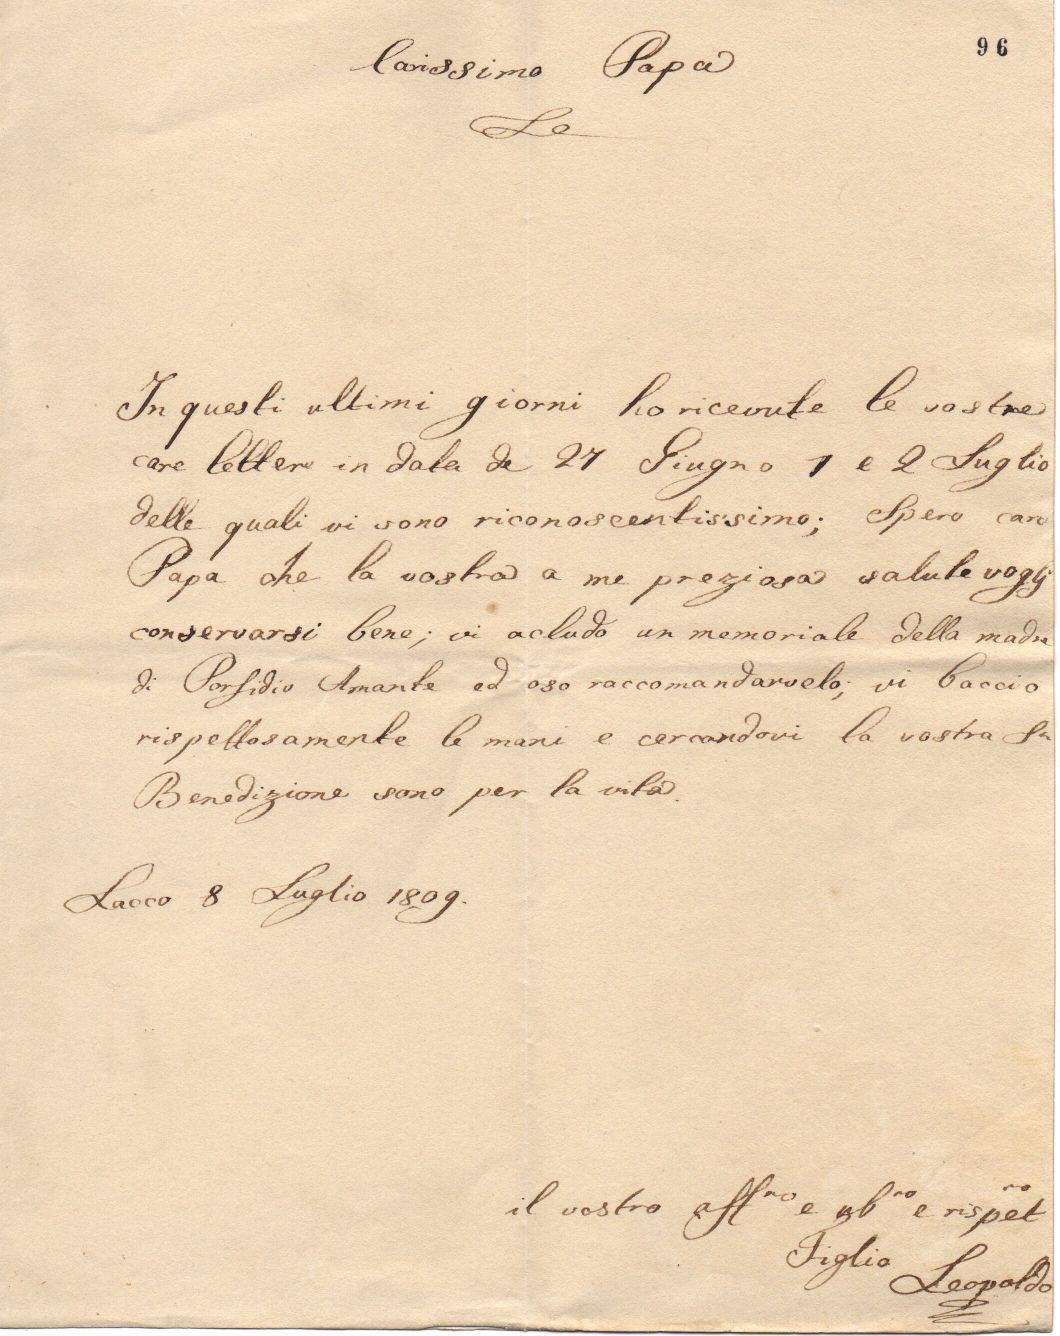 96
Carissimo Papa
In questi ultimi giorni ho ricevute le vostre
care lettere in data de 27 Giugno 1 e 2 Luglio
delle quali vi sono riconoscentissimo; Spero caro
Papa che la vostra a me preziosa salute vogli
conservarsi bene; vi acludo un memoriale della madre
di Porfidio Amante ed oso raccomandarvelo; vi baccio
rispettosamente le mani e cercandovi la vostra Sta
Benedizione sono per la vita.
Lacco 8 Luglio 1809.
il vostro affmo e ubmo e rispetmo
Figlio
Leopoldo